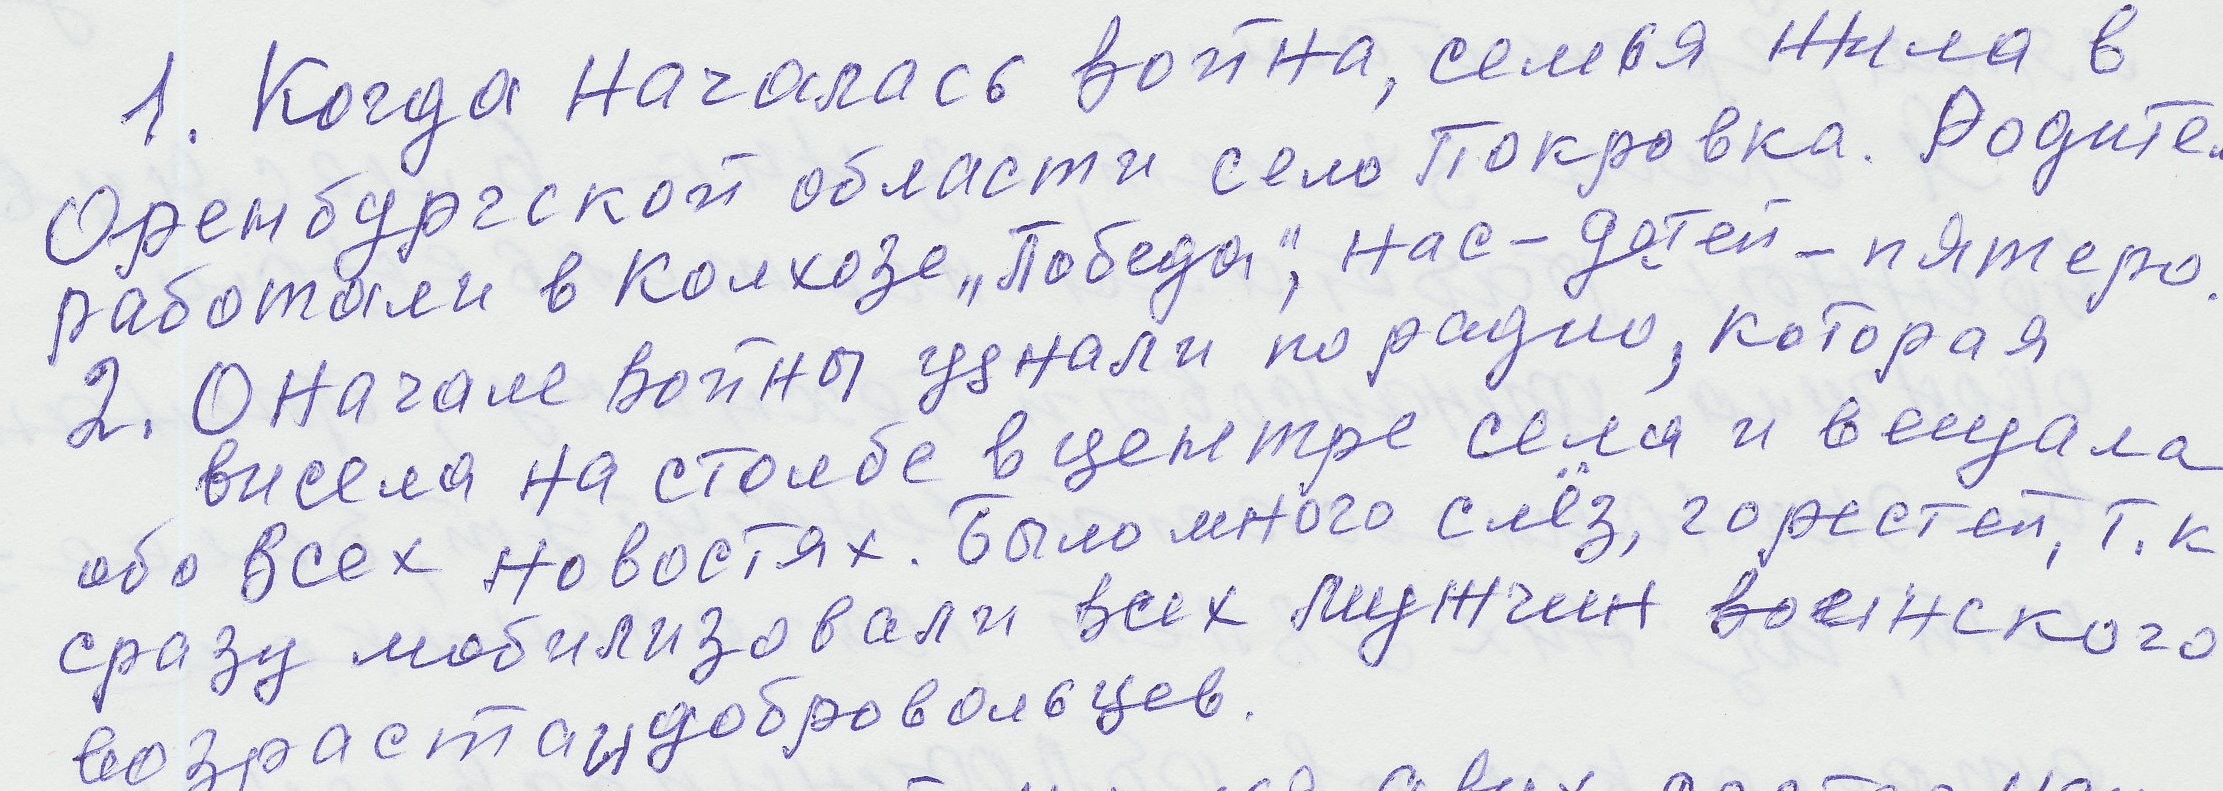 1. Когда началась война, семья жила в
Оренбургской области село Покровка. Родите
работали в колхозе „Победа", нас - детей - пятеро.
2. О начале войны узнали по радио, которая
висела на столбе в центре села и вещала
обо всех новостях. Было много слёз, горестей, т.к
сразу мобилизовали всех мужчин воинского
возраста и добровольцев.